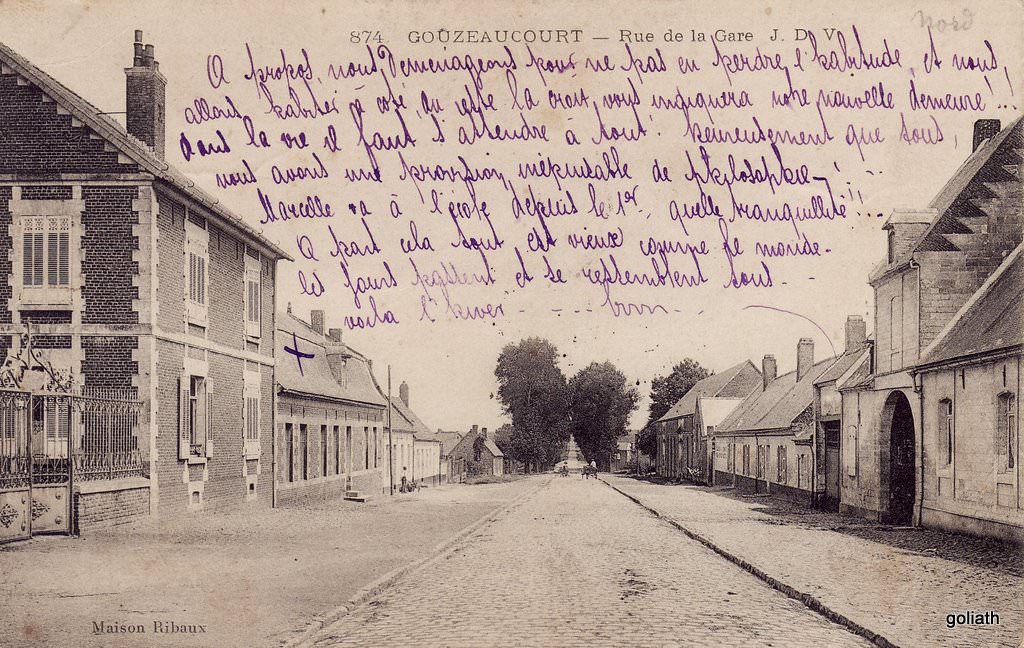 Nord
874 GOUZEAUCOURT — Rue de la Gare J. D. V.
A propos, nous Demenageons pour ne pas en perdre l'habitude, et nous,
allons habiter à côté, où cette la croix, vous indiquera notre nouvelle demeure!...
Dans la vie il faut s'attendre à tout! heureusement que tous,
nous avons une provision inépuisable de philosophie!
Marcelle va à l'école depuis le 1er, quelle tranquillité!!...
A part cela tout est vieux comme le monde.
les jours passent et se ressemblent tous.
voila l'hiver.---- brrr..
Maison Ribaux
goliath